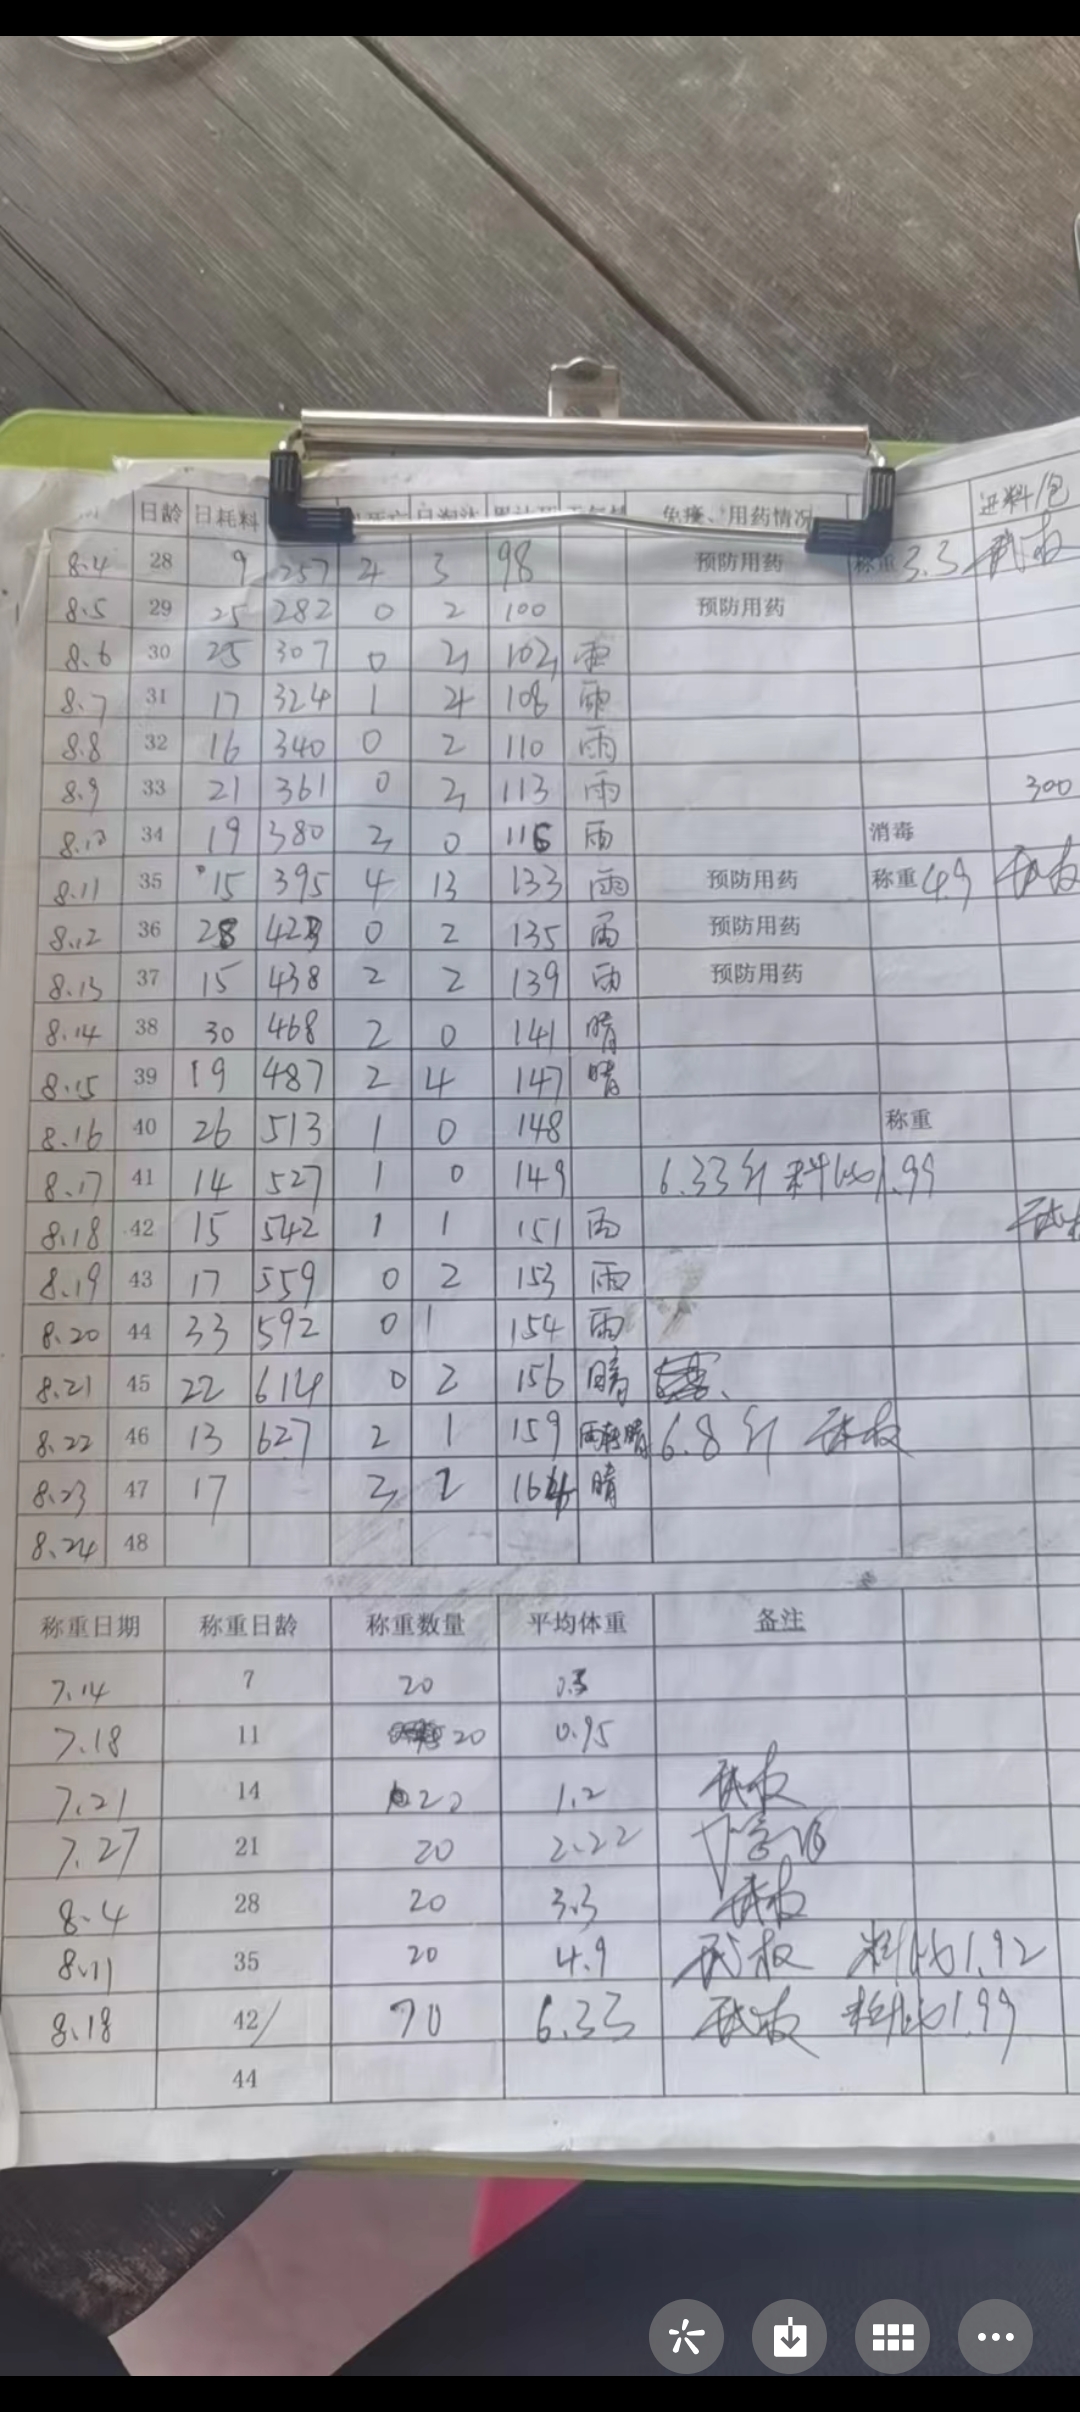 日龄 日耗料 免疫、用药情况 进料/包
8.4 28 9 257 4 3 98 预防用药 称重 3.3
8.5 29 25 282 0 2 100 预防用药
8.6 30 25 307 0 2 102 雨
8.7 31 17 324 1 4 108 雨
8.8 32 16 340 0 2 110 雨
8.9 33 21 361 0 3 113 雨 300
8.10 34 19 380 3 0 116 雨 消毒
8.11 35 15 395 4 13 133 雨 预防用药 称重 4.9
8.12 36 28 423 0 2 135 雨 预防用药
8.13 37 15 438 2 2 139 雨 预防用药
8.14 38 30 468 2 0 141 晴
8.15 39 19 487 2 4 147 晴
8.16 40 26 513 1 0 148 称重
8.17 41 14 527 1 0 149 6.33斤 料比1.99
8.18 42 15 542 1 1 151 雨
8.19 43 17 559 0 2 153 雨
8.20 44 33 592 0 1 154 雨
8.21 45 22 614 0 2 156 晴
8.22 46 13 627 2 1 159 雨转晴 6.8斤
8.23 47 17 3 2 164 晴
8.24 48
称重日期 称重日龄 称重数量 平均体重 备注
7.14 7 20
7.18 11 20 0.95
7.21 14 20 1.2
7.27 21 20 2.22
8.4 28 20 3.3
8.11 35 20 4.9 料比1.92
8.18 42 70 6.33 料比1.99
44